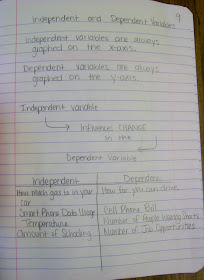 9
Independent and Dependent Variables
Independent variables are always
graphed on the x-axis.
Dependent variables are always
graphed on the y-axis.
Independent Variable
Influences CHANGE
in the
Dependent Variable
Independent
Dependent
How much gas is in your
car
How far you can drive
Smart Phone Data Usage
Cell Phone Bill
Temperature
Number of People Wearing Shorts
Amount of Schooling
Number of Job Opportunities